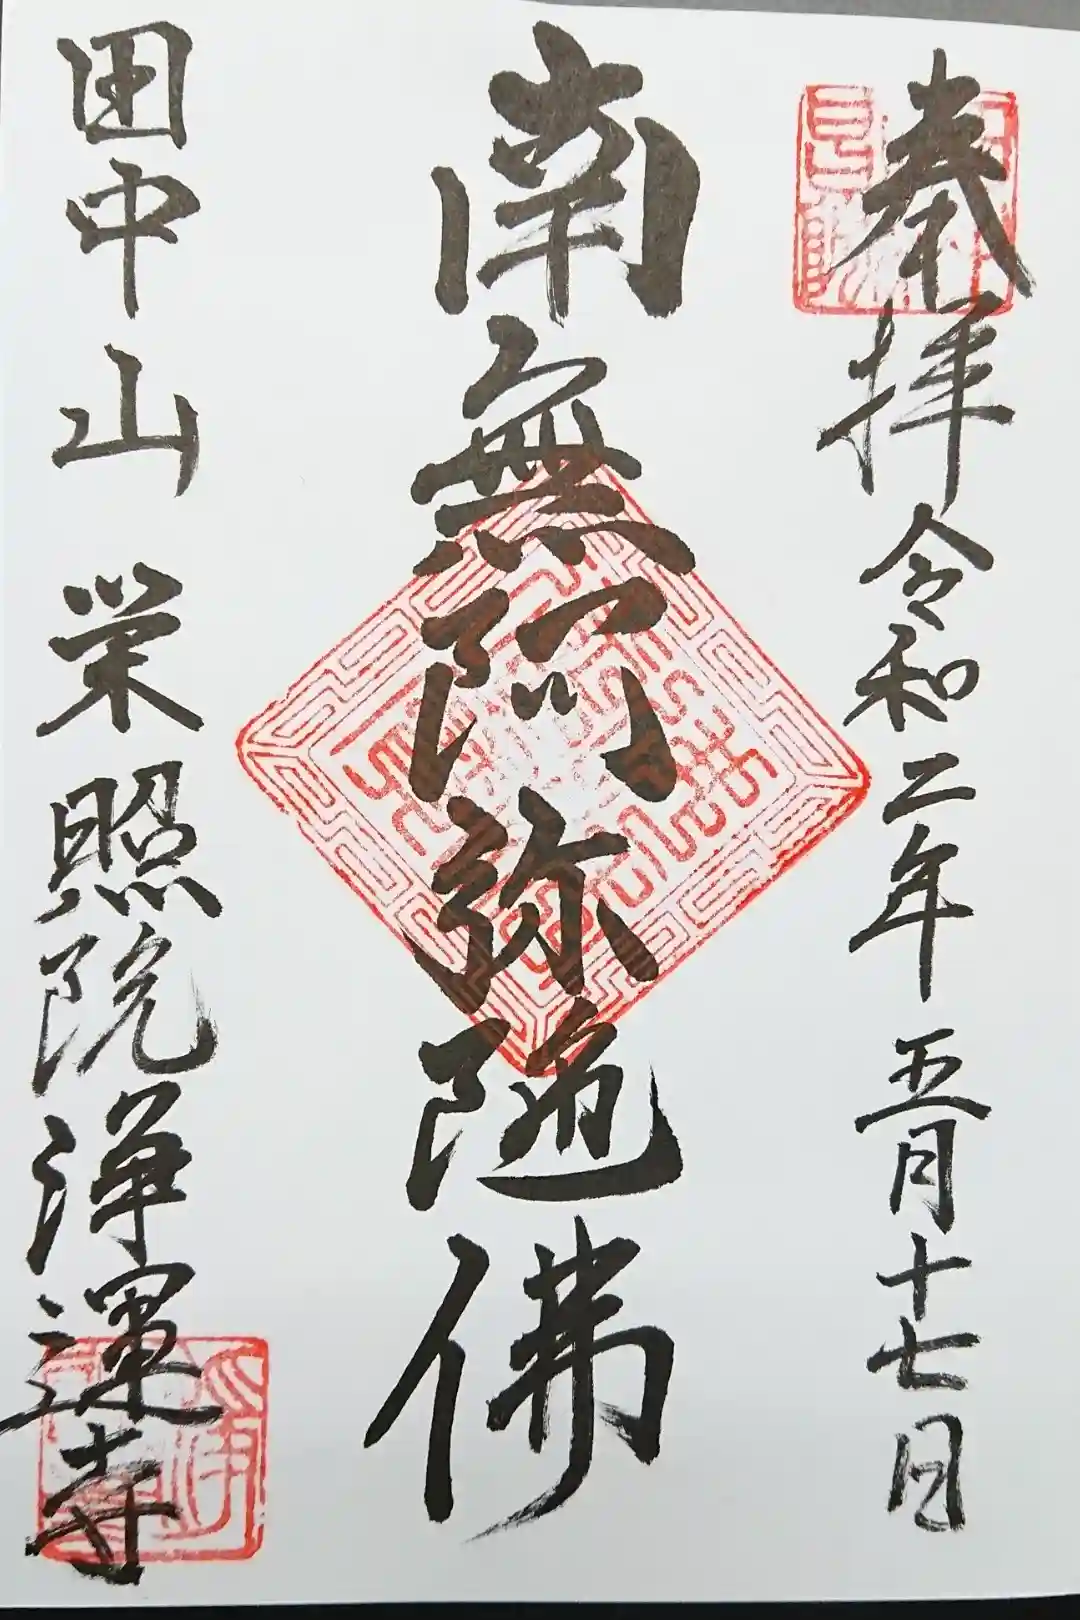 奉拝 令和二年 五月十七日
南無阿弥陀佛
田中山 栄照院 浄運寺